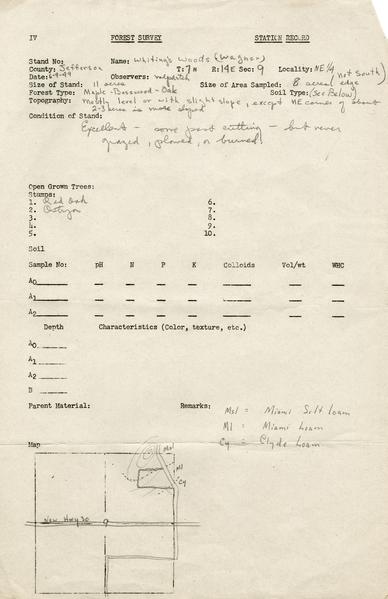 IV FOREST SURVEY STATION RECORD
Stand No: Name: Whiting's Woods (Wagner)
County: Jefferson T: 7N R: 14E Sec: 9 Locality: NE 1/4
Date: 6-9-49 Observers: not South)
Size of Stand: 11 acre Size of Area Sampled: 8 acres edge
Forest Type: Maple-Basswood-Oak Soil Type: (See Below)
Topography: Mostly level or with slight slope, except NE corner of about
2-3 acres is more sloped
Condition of Stand:
Excellent - some past cutting - but never
grazed, plowed, or burned!
Open Grown Trees:
Stumps:
1. Red Oak 6.
2. Ostrya 7.
3. 8.
4. 9.
5. 10.
Soil
Sample No: pH N P K Colloids Vol/wt WHC
A0
A1
A2
Depth Characteristics (Color, texture, etc.)
A0
A1
A2
B
Parent Material: Remarks: Msl = Miami Silt Loam
Ml = Miami Loam
Cy = Clyde Loam
Map
Msl
Ml
Cy
New Hwy 30
9